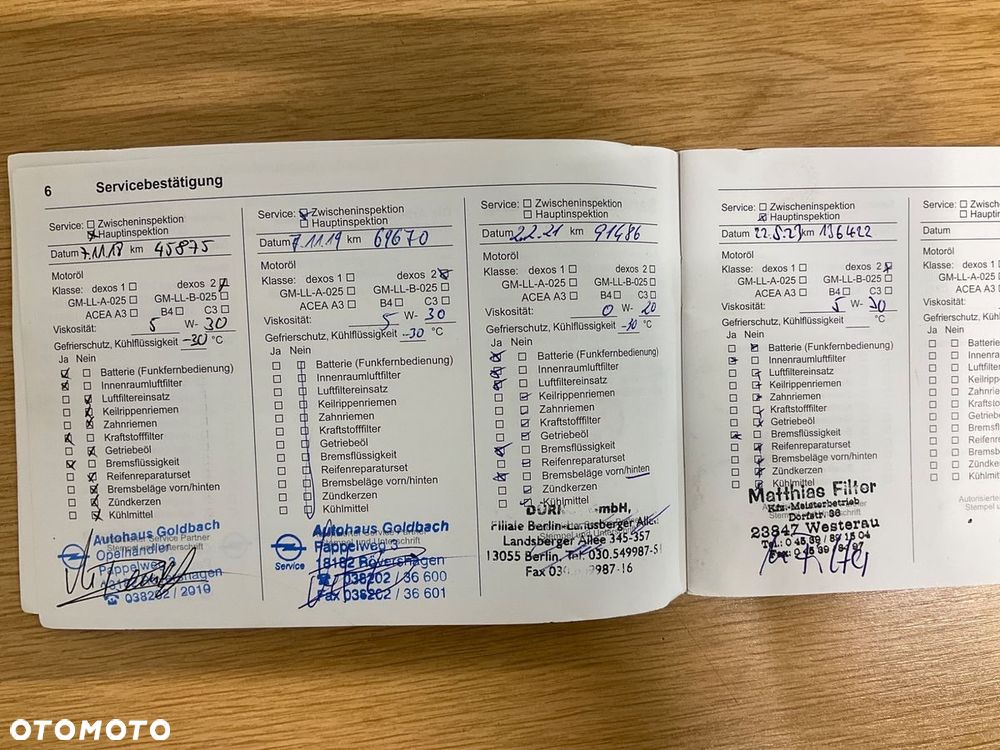 6 Servicebestätigung
Service: Zwischeninspektion
Hauptinspektion
Datum 7.11.18 km 45875
Motoröl
Klasse: dexos 1 dexos 2
GM-LL-A-025 GM-LL-B-025
ACEA A3 B4 C3
Viskosität: 5 W- 30
Gefrierschutz, Kühlflüssigkeit -30 °C
Ja Nein
Batterie (Funkfernbedienung)
Innenraumluftfilter
Luftfiltereinsatz
Keilrippenriemen
Zahnriemen
Kraftstofffilter
Getriebeöl
Bremsflüssigkeit
Reifenreparaturset
Bremsbeläge vorn/hinten
Zündkerzen
Kühlmittel
Autohaus Goldbach
Service Partner
Opelhändler
Stempel und Unterschrift
Pappelweg
038202 / 2010
Service: Zwischeninspektion
Hauptinspektion
Datum 7.11.19 km 69670
Motoröl
Klasse: dexos 1 dexos 2
GM-LL-A-025 GM-LL-B-025
ACEA A3 B4 C3
Viskosität: 5 W- 30
Gefrierschutz, Kühlflüssigkeit -30 °C
Ja Nein
Batterie (Funkfernbedienung)
Innenraumluftfilter
Luftfiltereinsatz
Keilrippenriemen
Zahnriemen
Kraftstofffilter
Getriebeöl
Bremsflüssigkeit
Reifenreparaturset
Bremsbeläge vorn/hinten
Zündkerzen
Kühlmittel
Autohaus Goldbach
Stempel und Unterschrift
Pappelweg 3
18182 Rövershagen
Service
038202 / 36 600
Fax 038202 / 36 601
Service: Zwischeninspektion
Hauptinspektion
Datum 2.2.21 km 91486
Motoröl
Klasse: dexos 1 dexos 2
GM-LL-A-025 GM-LL-B-025
ACEA A3 B4 C3
Viskosität: 0 W- 20
Gefrierschutz, Kühlflüssigkeit -30 °C
Ja Nein
Batterie (Funkfernbedienung)
Innenraumluftfilter
Luftfiltereinsatz
Keilrippenriemen
Zahnriemen
Kraftstofffilter
Getriebeöl
Bremsflüssigkeit
Reifenreparaturset
Bremsbeläge vorn/hinten
Zündkerzen
Kühlmittel
Filiale Berlin-Landsberger Allee
Landsberger Allee 345-357
13055 Berlin, Tel. 030.549987-
Service: Zwischeninspektion
Hauptinspektion
Datum 22.5.23 km 136422
Motoröl
Klasse: dexos 1 dexos 2
GM-LL-A-025 GM-LL-B-025
ACEA A3 B4 C3
Viskosität: 5 W- 30
Gefrierschutz, Kühlflüssigkeit °C
Ja Nein
Batterie (Funkfernbedienung)
Innenraumluftfilter
Luftfiltereinsatz
Keilrippenriemen
Zahnriemen
Kraftstofffilter
Getriebeöl
Bremsflüssigkeit
Reifenreparaturset
Bremsbeläge vorn/hinten
Zündkerzen
Kühlmittel
Matthias Filter
Kfz.-Meisterbetrieb
Dorfstr. 36
23847 Westerau
Tel.: 0 45 39 / 89 15 04
Service:
Datum
Motoröl
Klasse:
Viskosität:
Ja Nein
OTOMOTO